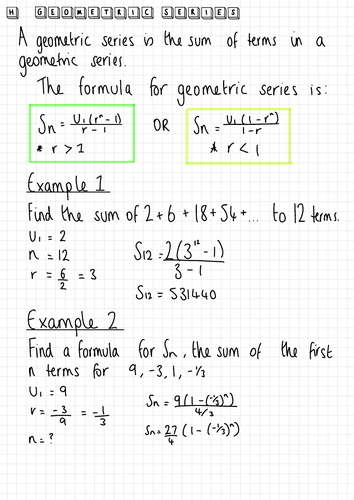 H GEOMETRIC SERIES
A geometric series is the sum of terms in a
geometric series.
The formula for geometric series is:
Sn = U₁(rⁿ-1) / r-1 OR Sn = U₁(1-rⁿ) / 1-r
* r > 1 * r < 1
Example 1
Find the sum of 2+6+18+54+... to 12 terms.
U₁ = 2
n = 12 S₁₂ = 2(3¹²-1) / 3-1
r = 6/2 = 3
S₁₂ = 531440
Example 2
Find a formula for Sn, the sum of the first
n terms for 9, -3, 1, -⅓
U₁ = 9
r = -3/9 = -1/3 Sn = 9(1-(-⅓)ⁿ) / 4/3
n = ? Sn = 27/4 (1-(-⅓)ⁿ)